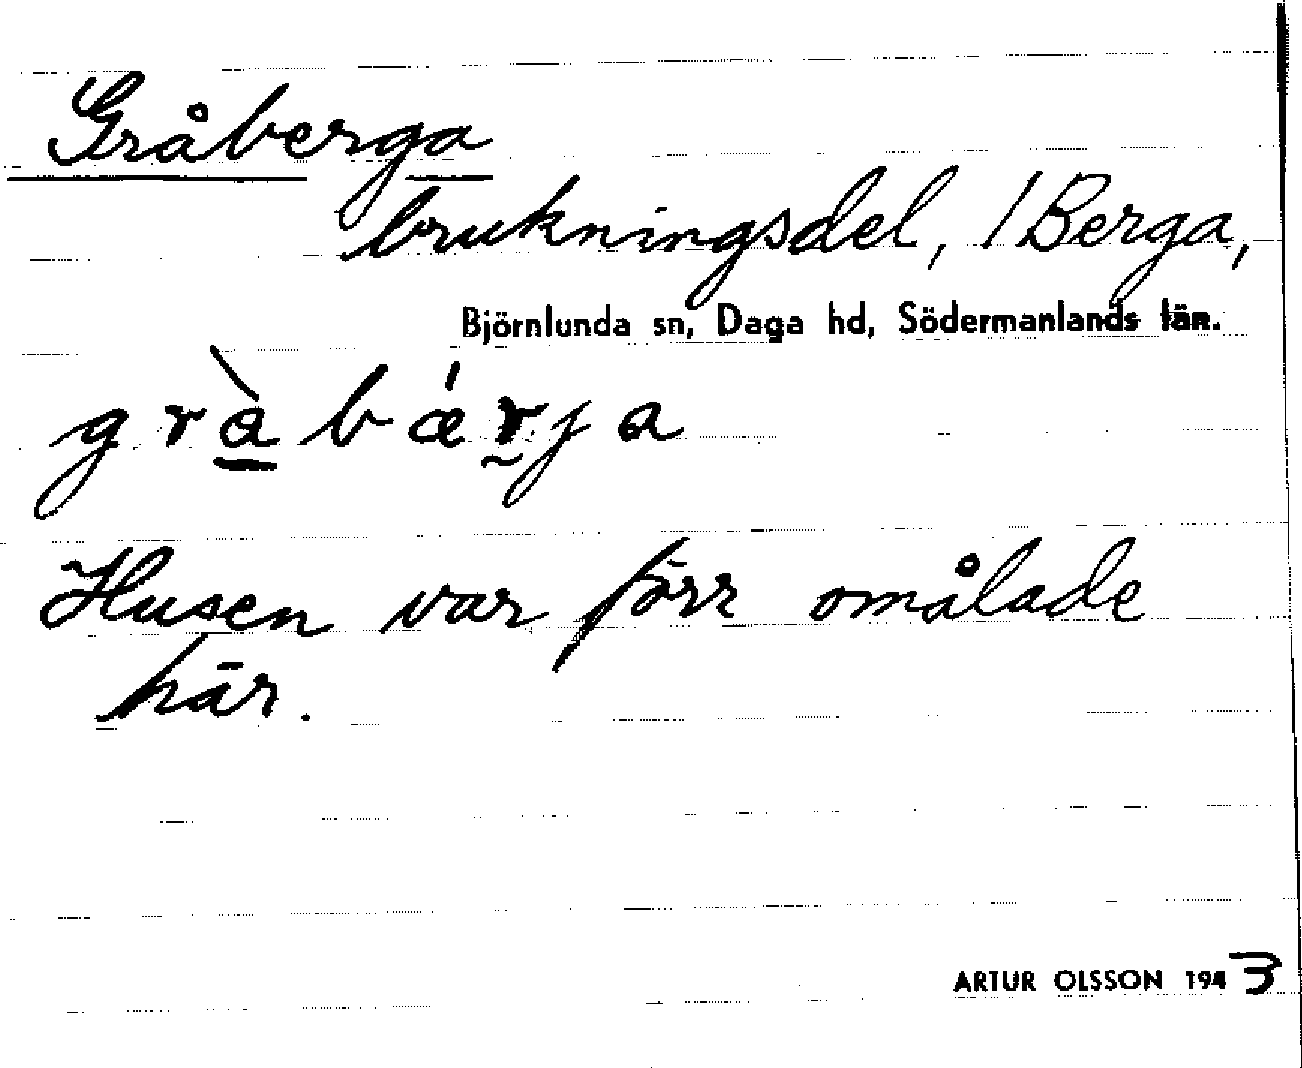 Gråberga
brukningsdel, 1 Berga,
Björnlunda sn, Daga hd, Södermanlands län.
gràbǽrja
Husen var förr omålade
här.
ARTUR OLSSON 1943